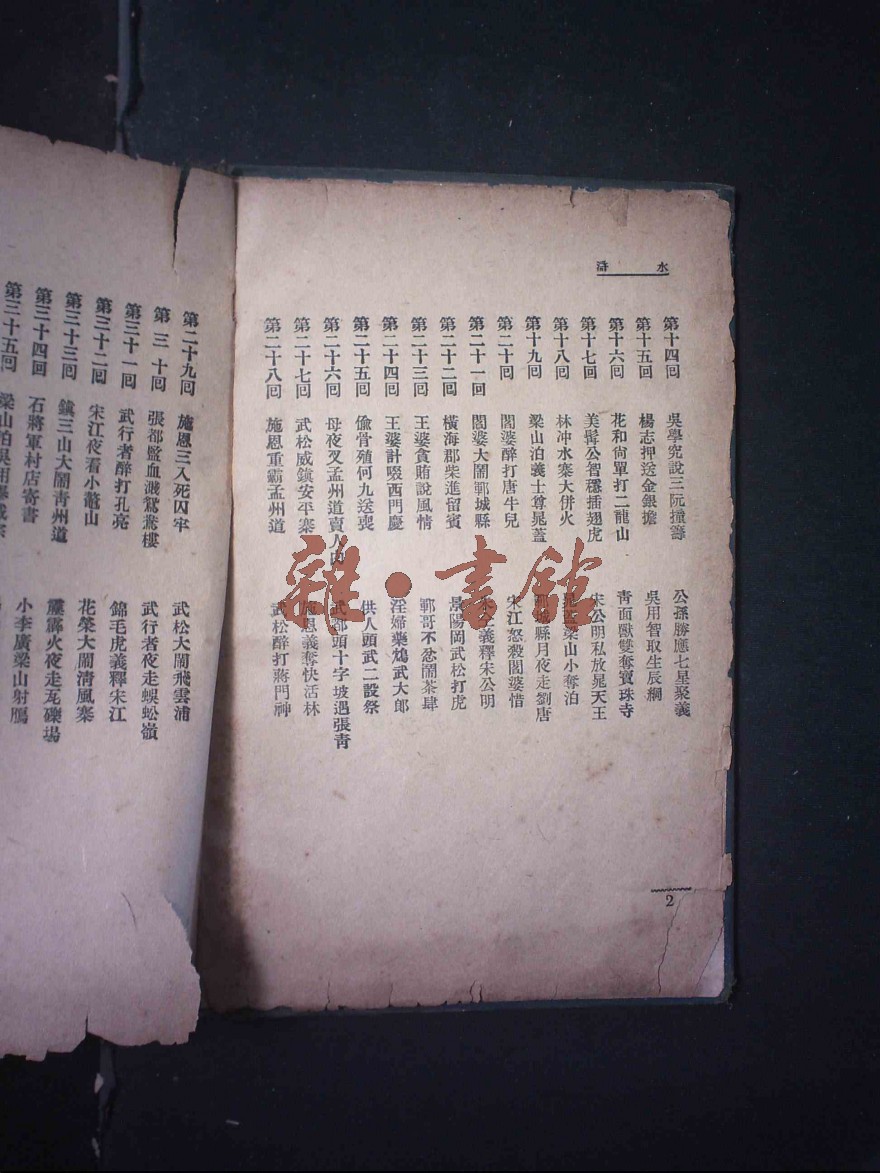 水滸
第十四回 吳學究說三阮撞籌 公孫勝應七星聚義
第十五回 楊志押送金銀擔 吳用智取生辰綱
第十六回 花和尚單打二龍山 青面獸雙奪寶珠寺
第十七回 美髯公智穩插翅虎 宋公明私放晁天王
第十八回 林冲水寨大併火 晁蓋梁山小奪泊
第十九回 梁山泊義士尊晁蓋 鄆城縣月夜走劉唐
第二十回 閻婆醉打唐牛兒 宋江怒殺閻婆惜
第二十一回 閻婆大鬧鄆城縣 朱仝義釋宋公明
第二十二回 橫海郡柴進留賓 景陽岡武松打虎
第二十三回 王婆貪賄說風情 鄆哥不忿鬧茶肆
第二十四回 王婆計啜西門慶 淫婦藥鴆武大郎
第二十五回 偷骨殖何九送喪 供人頭武二設祭
第二十六回 母夜叉孟州道賣人肉 武都頭十字坡遇張青
第二十七回 武松威鎮安平寨 施恩義奪快活林
第二十八回 施恩重霸孟州道 武松醉打蔣門神
2
第二十九回 施恩三入死囚牢 武松大鬧飛雲浦
第三十回 張都監血濺鴛鴦樓 武行者夜走蜈蚣嶺
第三十一回 武行者醉打孔亮 錦毛虎義釋宋江
第三十二回 宋江夜看小鼇山 花榮大鬧清風寨
第三十三回 鎮三山大鬧青州道 霹靂火夜走瓦礫場
第三十四回 石將軍村店寄書 小李廣梁山射鴈
第三十五回 梁山泊吳用舉戴宗
雜·書館